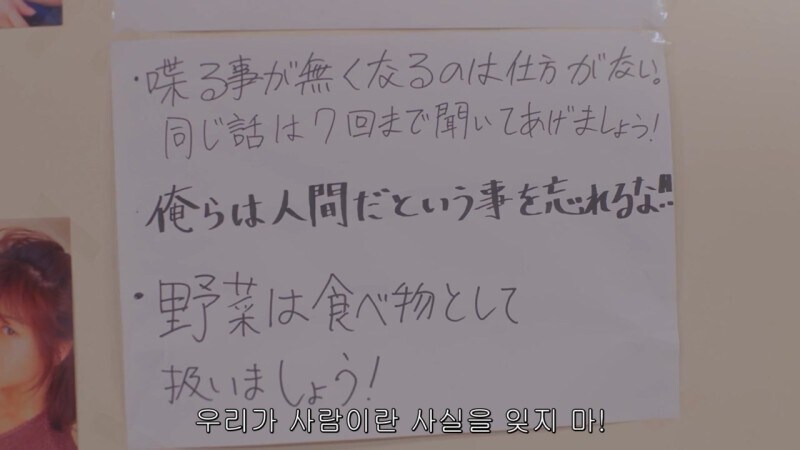 ・喋る事が無くなるのは仕方がない。
同じ話は7回まで聞いてあげましょう!
俺らは人間だという事を忘れるな!!
・野菜は食べ物として
扱いましょう!
우리가 사람이란 사실을 잊지 마!